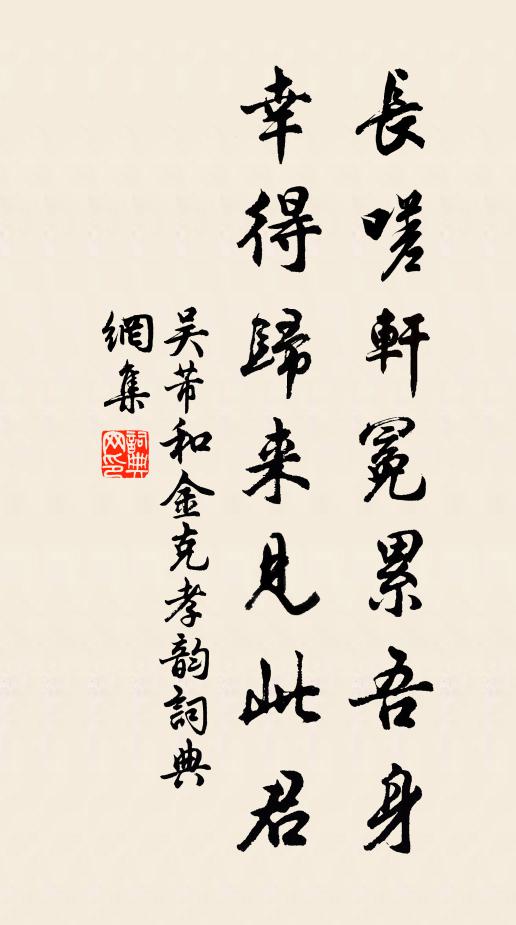 長嗟軒冕累吾身
幸得歸来見此君
吴芾和金克孝韵詞典
網集
詞典網印